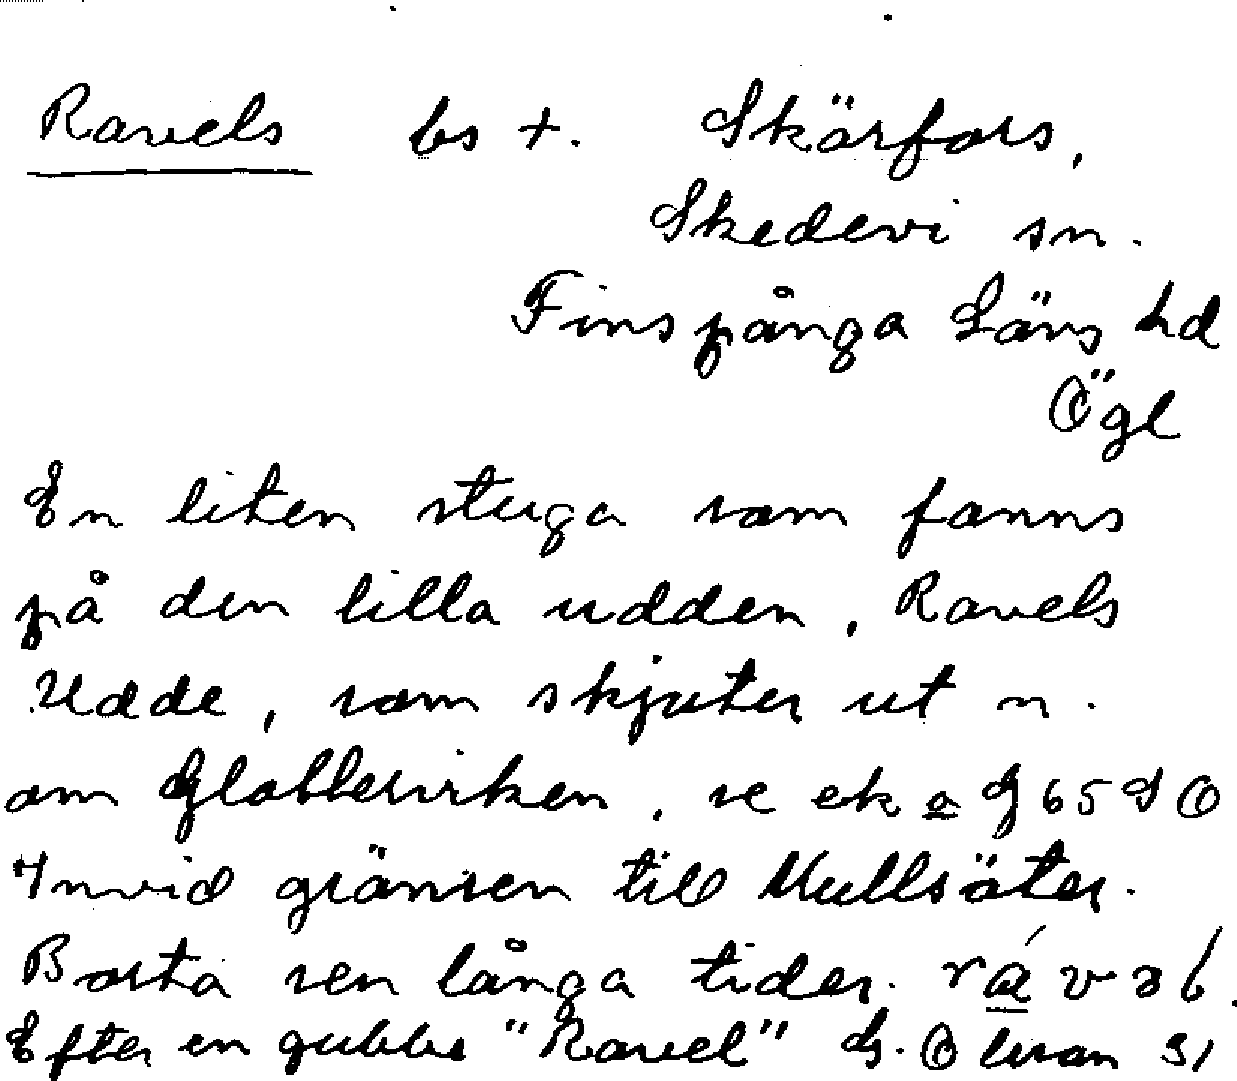 Ravels bs +. Skärfors,
Skedevi sn.
Finspånga Läns hd
Ögl
En liten stuga som fanns
på den lilla udden, Ravels
Udde, som skjuter ut n.
om Glabbervken, se ek a G 65 S O
Invid gränsen till Mullsäter.
Borta sen långa tider. rávəl.
Efter en gubbe "Ravel" G. Olsson 31